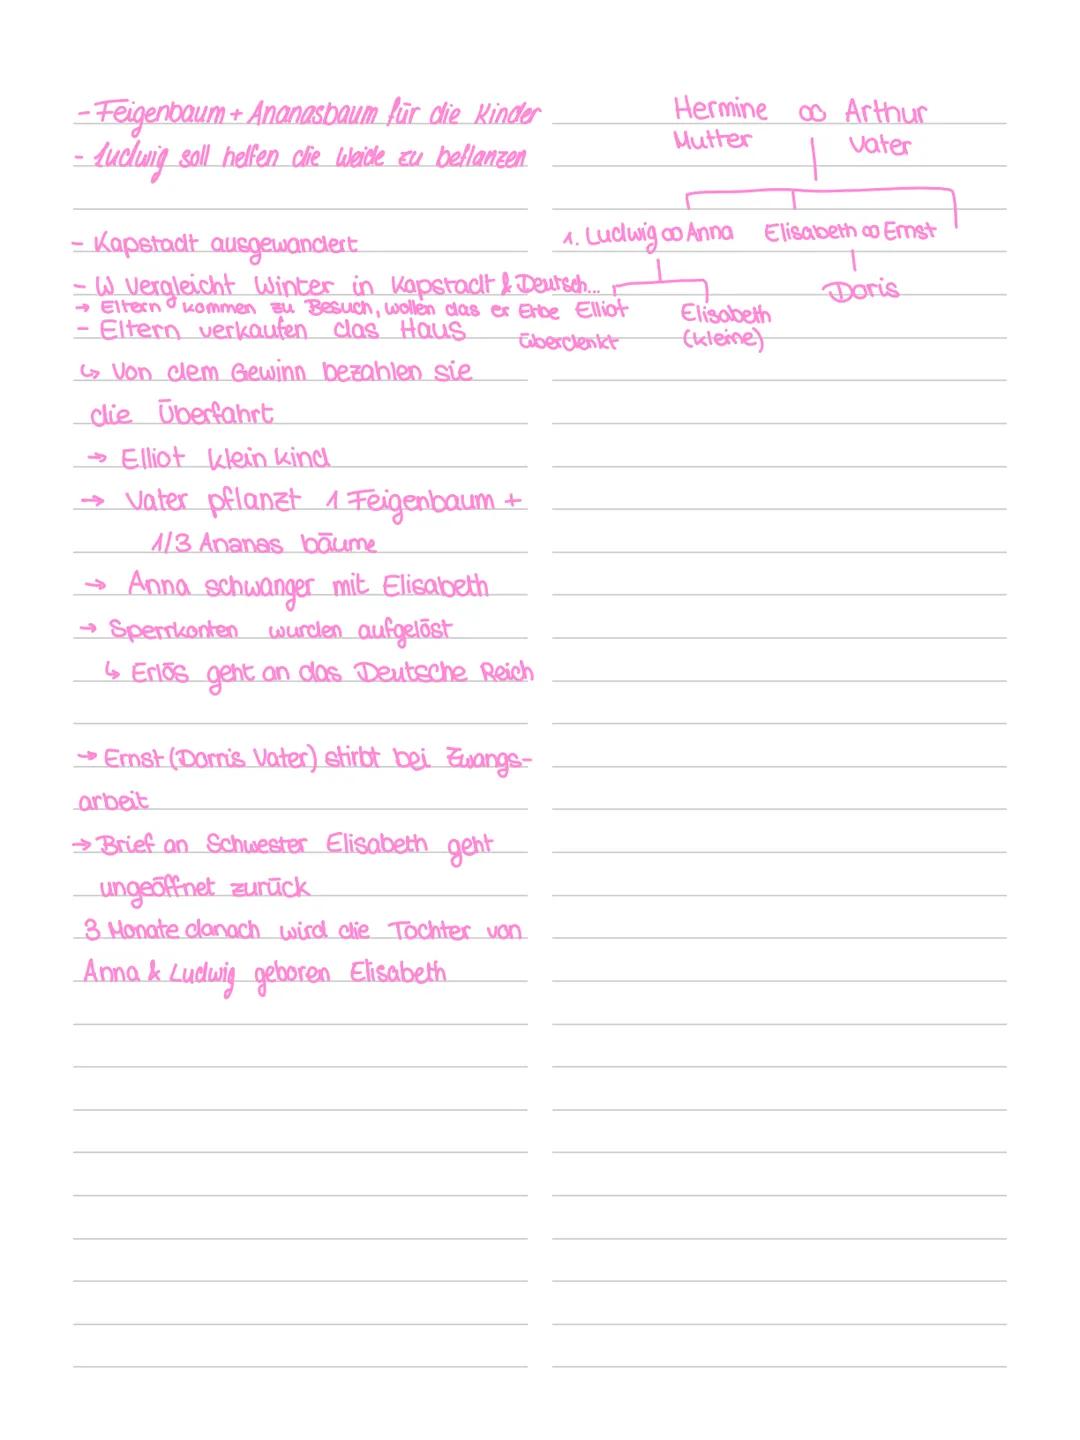 - Feigenbaum + Ananasbaum für die Kinder
- Ludwig soll helfen die Weide zu beflanzen
- Kapstadt ausgewandert
- W Vergleicht Winter in Kapstadt & Deutsch...
→ Eltern kommen zu Besuch, wollen das er Erbe
überdenkt
- Eltern verkaufen das Haus
↳ Von dem Gewinn bezahlen sie
die Überfahrt
→ Elliot klein kind
→ Vater pflanzt 1 Feigenbaum +
1/3 Ananas bäume
→ Anna schwanger mit Elisabeth
→ Sperrkonten wurden aufgelöst
↳ Erlös geht an das Deutsche Reich
→ Ernst (Dorris Vater) stirbt bei Zwangs-
arbeit
→ Brief an Schwester Elisabeth geht
ungeöffnet zurück
3 Monate danach wird die Tochter von
Anna & Ludwig geboren Elisabeth
Hermine ∞ Arthur
Mutter Vater
1. Ludwig ∞ Anna Elisabeth ∞ Ernst
Doris
Elliot Elisabeth
(kleine)